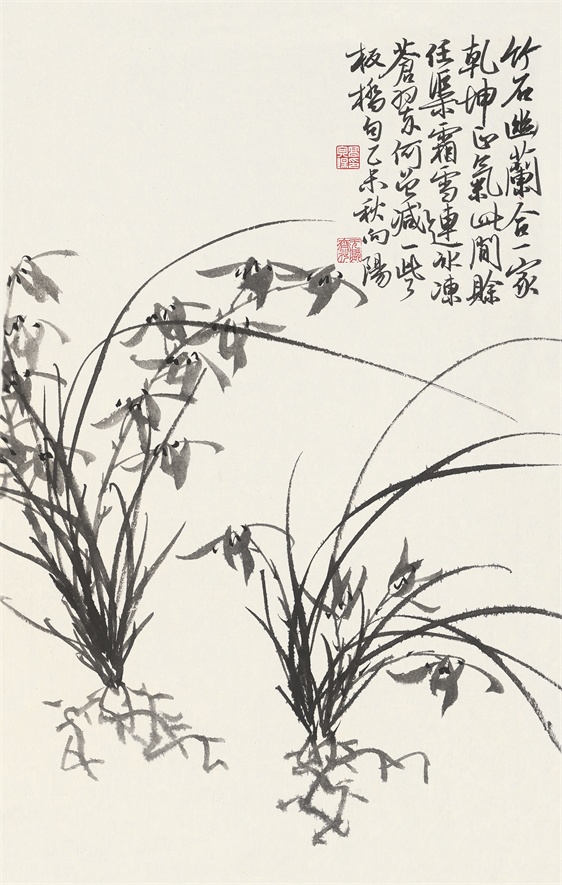 竹石幽蘭合一家
乾坤正氣此間賒
任渠霜雪連冰凍
蒼翠何曾減一些
板橋句乙未秋向陽